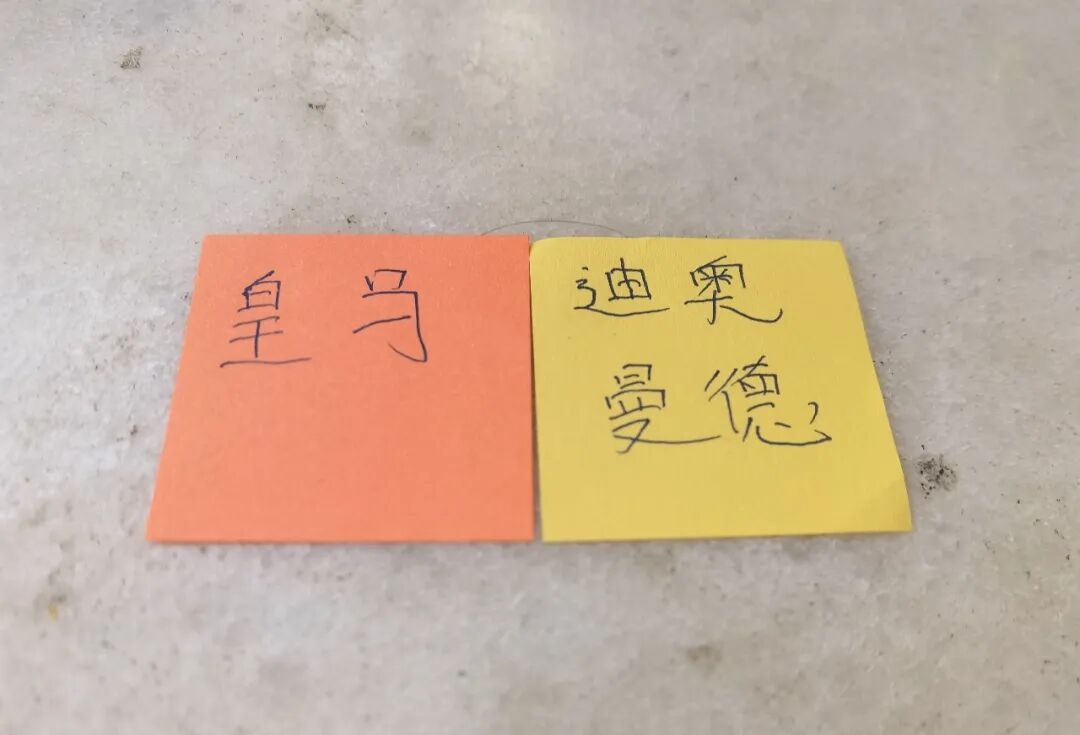 皇马
迪奥
曼德